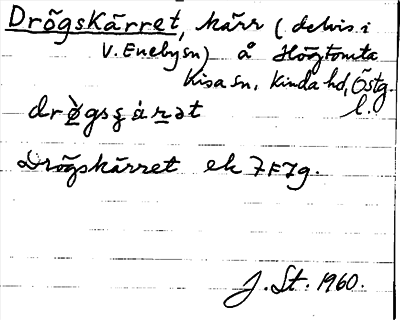 Drögskärret, kärr (delvis i
V. Eneby sn) å Högtomta
Kisa sn, Kinda hd, Östg.
l.
drö̀gsʂárət
Drögskärret ek 7F7g.
J. St. 1960.